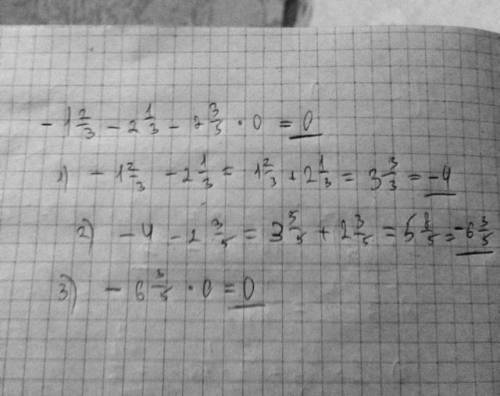 - 1 2/3 - 2 1/3 - 2 3/5 · 0 = 0
1) - 1 2/3 - 2 1/3 = 1 2/3 + 2 1/3 = 3 3/3 = -4
2) - 4 - 2 3/5 = 3 5/5 + 2 3/5 = 5 8/5 = -6 3/5
3) - 6 3/5 · 0 = 0